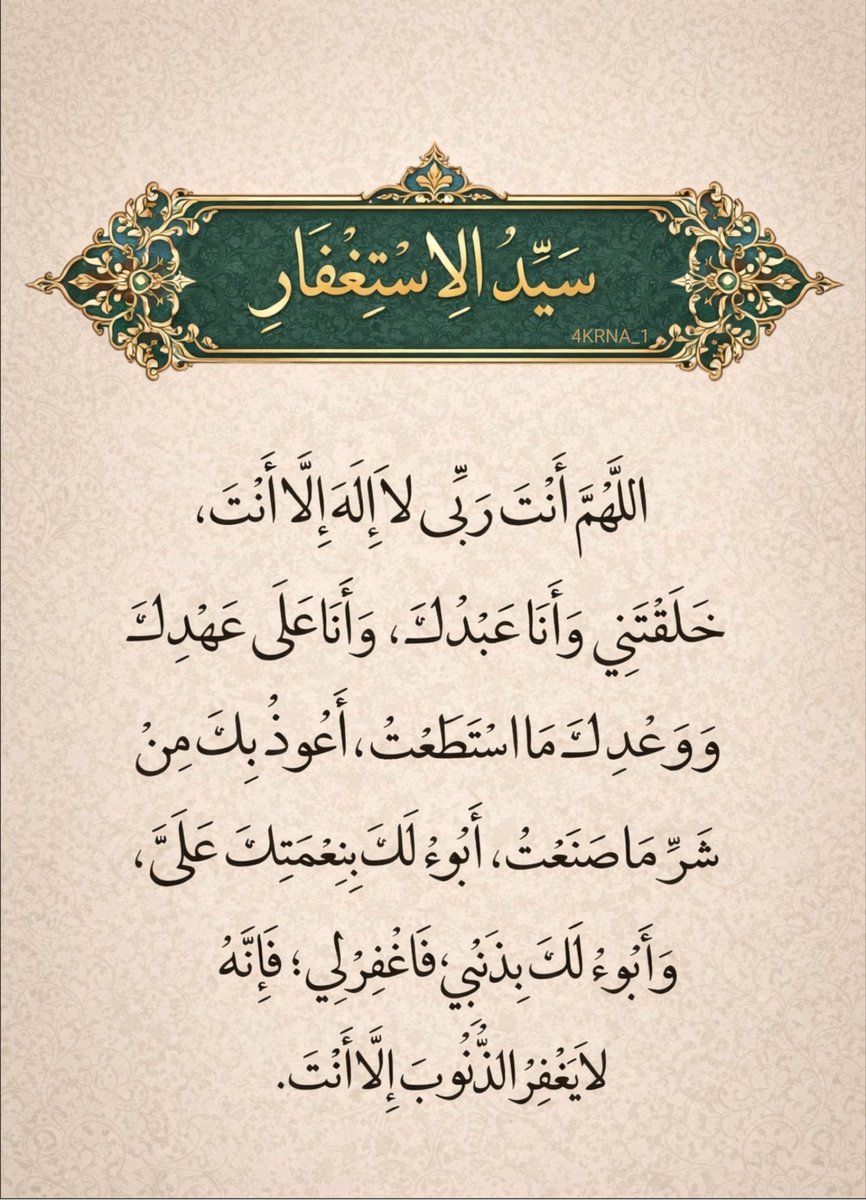 سَيِّدُ الِاسْتِغْفَارِ
4KRNA_1
اللَّهُمَّ أَنْتَ رَبِّى لاَ إِلَهَ إِلَّا أَنْتَ،
خَلَقْتَنِي وَأَنَا عَبْدُكَ، وَأَنَا عَلَى عَهْدِكَ
وَوَعْدِكَ مَا اسْتَطَعْتُ، أَعُوذُ بِكَ مِنْ
شَرِّ مَا صَنَعْتُ، أَبُوءُ لَكَ بِنِعْمَتِكَ عَلَىَّ،
وَأَبُوءُ لَكَ بِذَنْبِي، فَاغْفِرْ لِي؛ فَإِنَّهُ
لاَ يَغْفِرُ الذُّنُوبَ إِلَّا أَنْتَ.